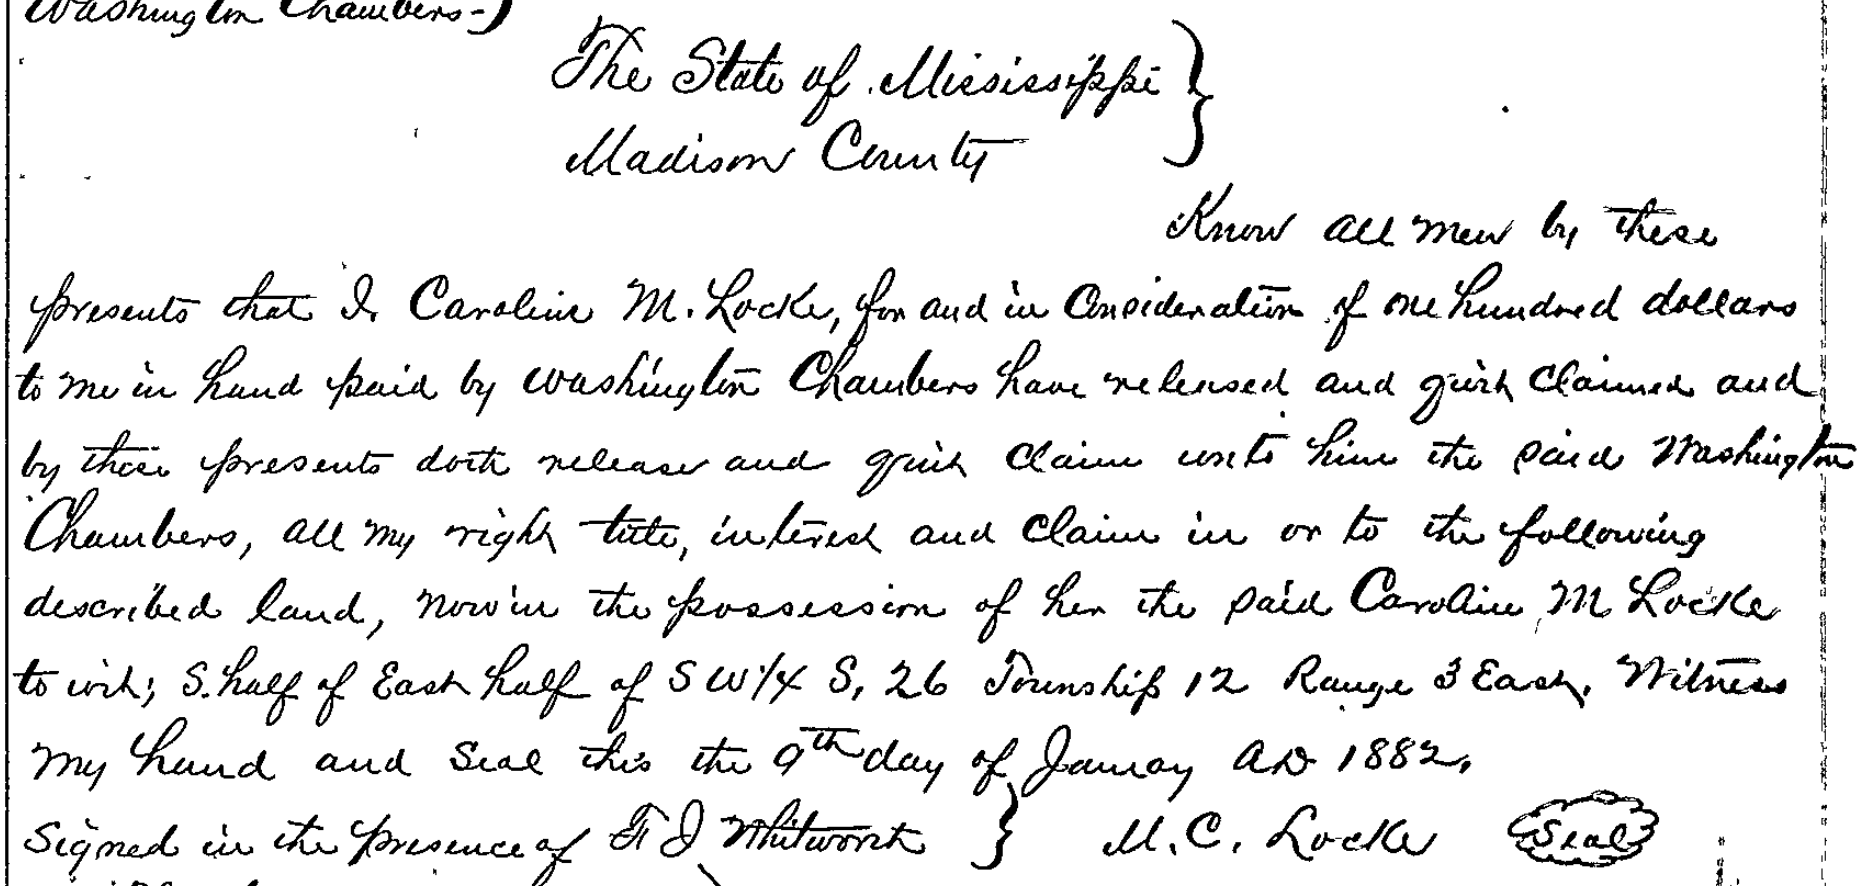 Washington Chambers-)
The State of Mississippi }
Madison County
Know all men by these
presents that I, Caroline M. Locke, for and in Consideration of one hundred dollars
to me in hand paid by Washington Chambers have released and quit Claimed and
by these presents doth release and quit Claim unto him the said Washington
Chambers, all my right title, interest and Claim in or to the following
described land, now in the possession of her the said Caroline M Locke
to wit; S. half of East half of S W 1/4 S, 26 Township 12 Range 3 East, Witness
my hand and Seal this the 9th day of January AD 1882,
Signed in the presence of F J Whitworth } M. C. Locke Seal